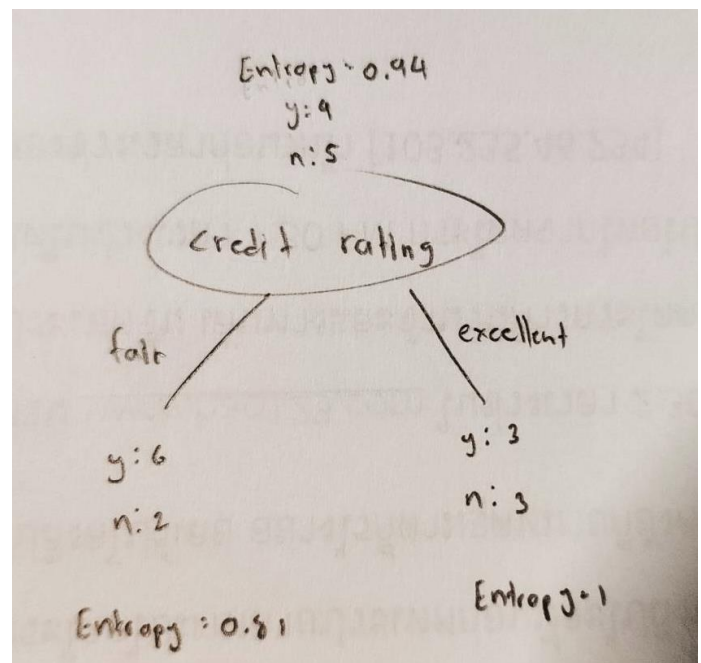 Entropy = 0.94
y: 9
n: 5
credit rating
fair
excellent
y: 6
y: 3
n: 2
n: 3
Entropy = 1
Entropy = 0.81